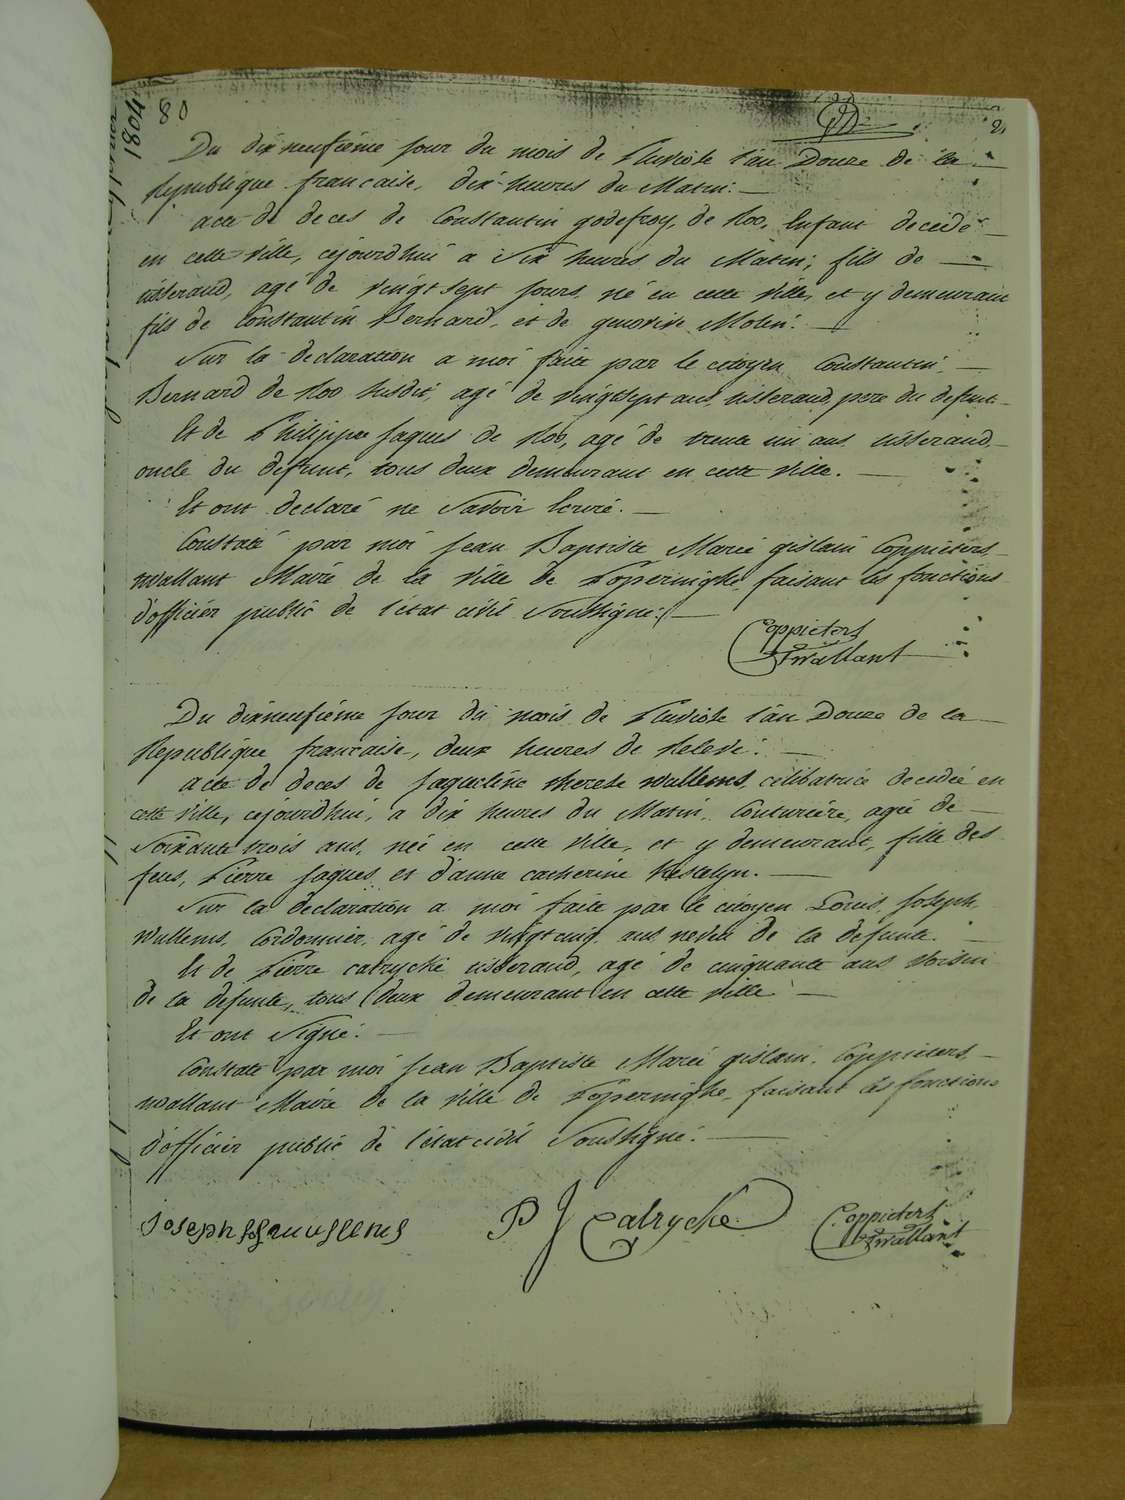 1804
80
Du dixneufiéme jour du mois de Pluviose l'an Douze de la
Republique francaise, dix heures du Matin.
acte de deces de Constantin godefroy de Roo, Enfant decedé
en cette ville, cejourdhui a Six heures du Matin; fils de
tisserand, agé de vingt sept jours né en cette ville, et y demeurant
fils de Constantin Bernard, et de genovive Molin.
Sur la declaration a moi faite par le citoyen Constantin
Bernard de Roo susdit, agé de vingtsept ans tisserand, pere du defunt
Et de Philippe Jaques de Roo, agé de trente un ans tisserand,
oncle du defunt, tous deux demeurant en cette ville.
Et ont declaré ne Savoir Ecrire.
Constaté par moi Jean Baptiste Marie gislain Coppieters
wallant Maire de la ville de Poperinghe, faisant les fonctions
d'officier public de l'état civil Soussigné.
Coppieters
Jwallant
Du dixneufiéme jour du mois de Pluviose l'an Douze de la
Republique francaise, deux heures de Relevé.
acte de deces de Jaqueline therese wullems, célibatrice decedée en
cette ville, cejourdhui, a dix heures du Matin, Couturière, agée de
Soixante trois ans, née en cette ville, et y demeurant, fille des
feus, Pierre Jaques, et d'anne catherine Kestelyn.
Sur la declaration a moi faite par le citoyen Louis Joseph
Wullems, Cordonnier, agé de vingtcinq ans neveu de la defunte.
Et de Pierre catrycke tisserand, agé de cinquante ans Voisin
de la defunte, tous deux demeurant en cette ville
Et ont Signé.
Constaté par moi Jean Baptiste Marie gislain Coppieters
wallant Maire de la ville de Poperinghe, faisant les fonctions
d'officier public de l'état civil Soussigné.
Joseph wullems P J Catrycke Coppieters
Jwallant